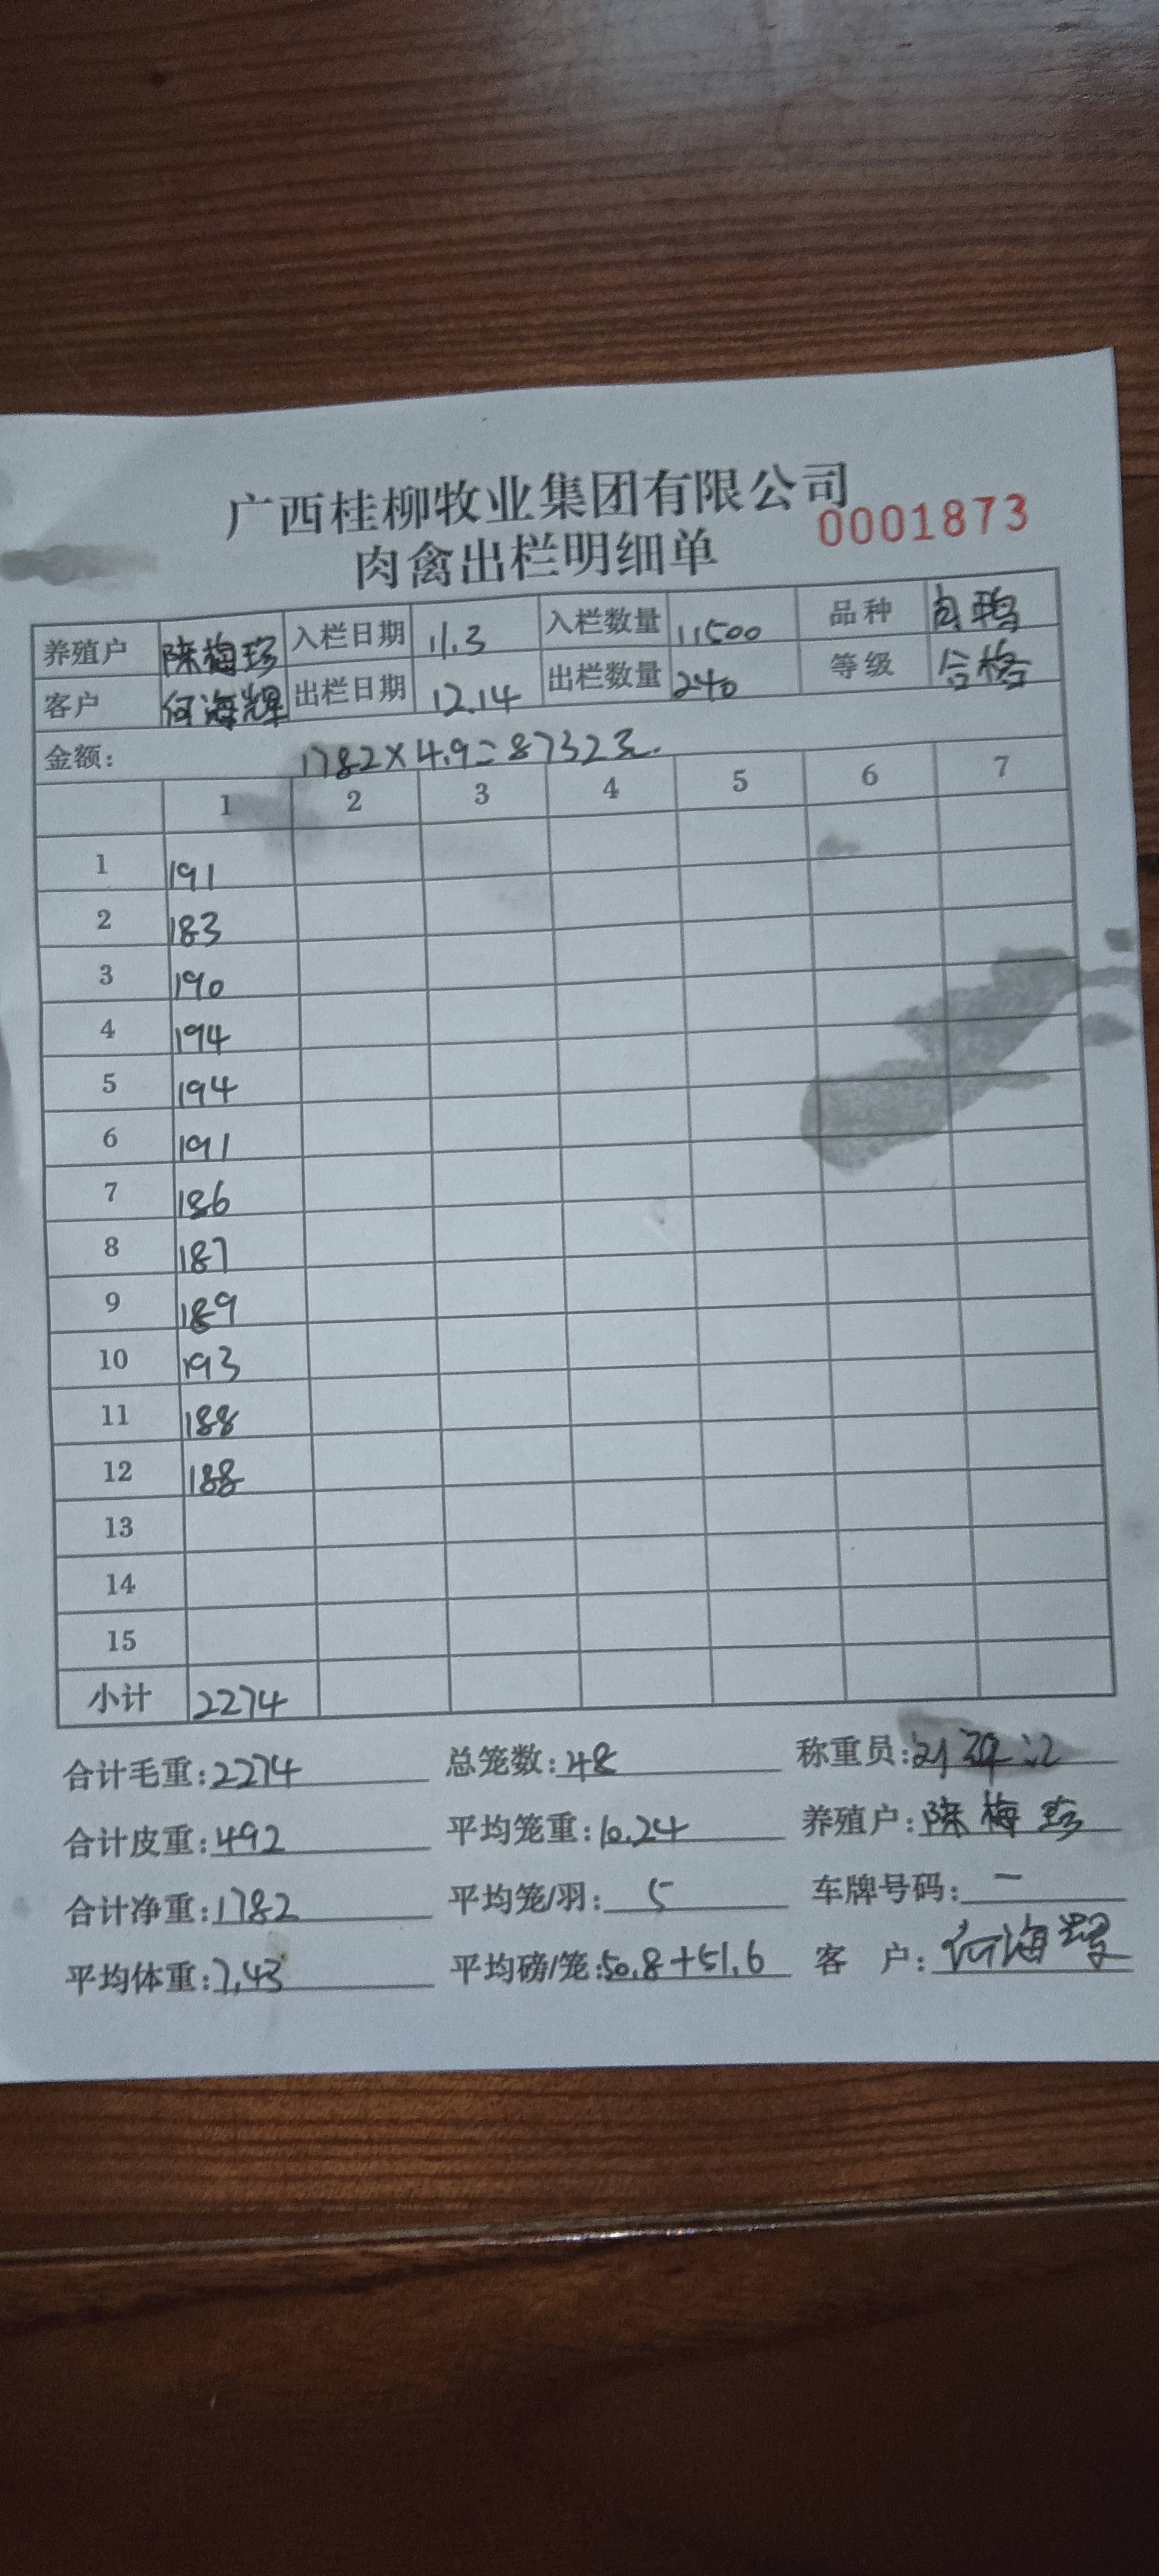 广西桂柳牧业集团有限公司
0001873
肉禽出栏明细单
养殖户 陈梅珍 入栏日期 11.3 入栏数量 11500 品种 白鸭
客户 何海辉 出栏日期 12.14 出栏数量 240 等级 合格
金额: 1782×4.9=8732元.
1 2 3 4 5 6 7
1 191
2 183
3 190
4 194
5 194
6 191
7 186
8 187
9 189
10 193
11 188
12 188
13
14
15
小计 2274
合计毛重:2274 总笼数:48 称重员:
合计皮重:492 平均笼重:10.24 养殖户:陈梅珍
合计净重:1782 平均笼/羽: 5 车牌号码: 一
平均体重:7.43 平均磅/笼:50.8+51.6 客 户:何海辉